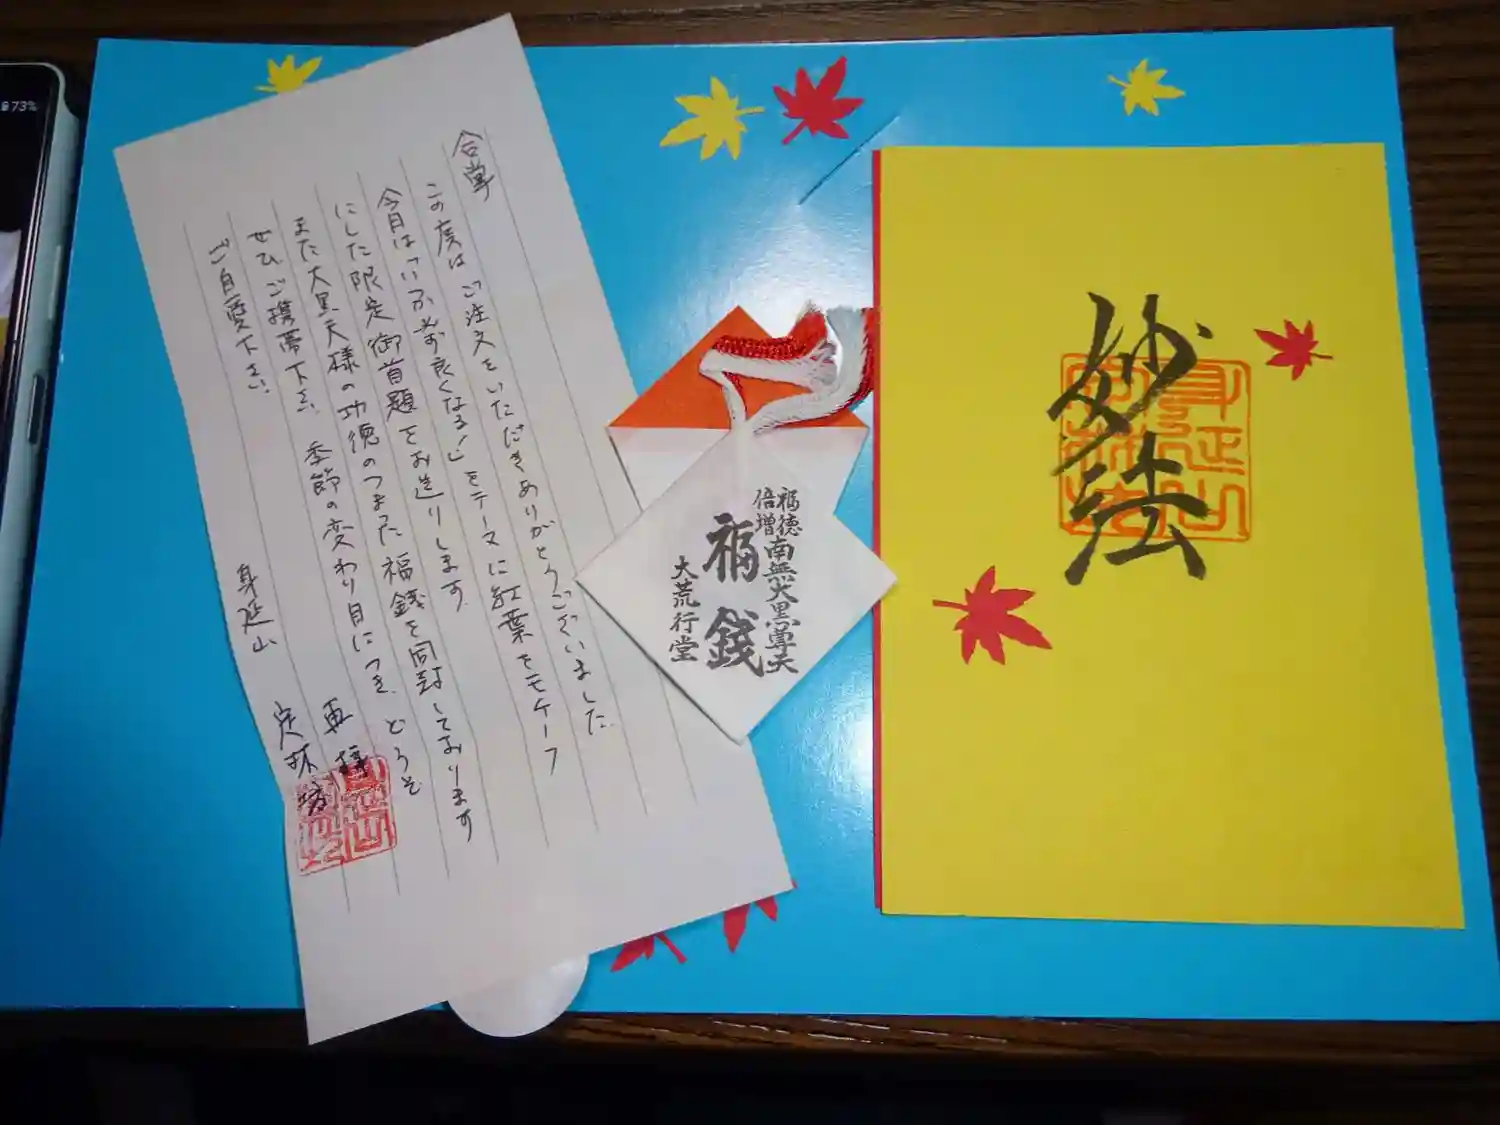 73%
合掌
この度はご注文をいただきありがとうございました。
今月は「いつか必ず良くなる!」をテーマに紅葉をモチーフ
にした限定御首題をお送りします。
また大黒天様の功徳のつまった福銭を同封しております
ぜひご携帯下さい。季節の変わり目につき、どうぞ
ご自愛下さい。
身延山
定林坊
福徳
倍増
南無大黒尊天
福銭
大荒行堂
妙法